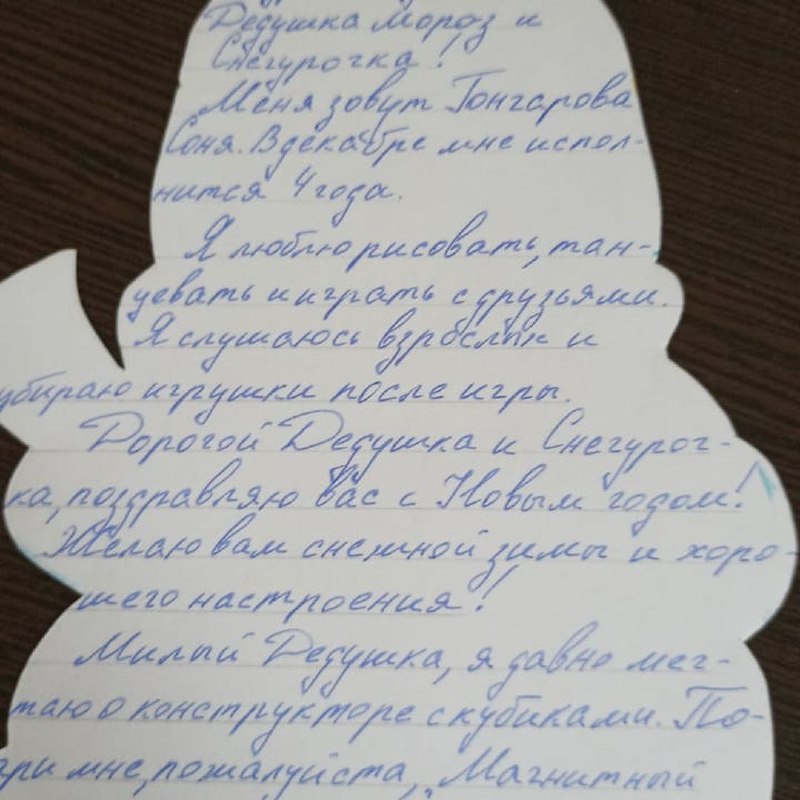 Дедушка Мороз и
Снегурочка!
Меня зовут Гончарова
Соня. В декабре мне испол-
нится 4 года.
Я люблю рисовать, тан-
цевать и играть с друзьями.
Я слушаюсь взрослых и
убираю игрушки после игры.
Дорогой Дедушка и Снегуроч-
ка, поздравляю вас с Новым годом!
Желаю вам снежной зимы и хоро-
шего настроения!
Милый Дедушка, я давно меч-
таю о конструкторе с кубиками. По-
дари мне, пожалуйста, „Магнитный